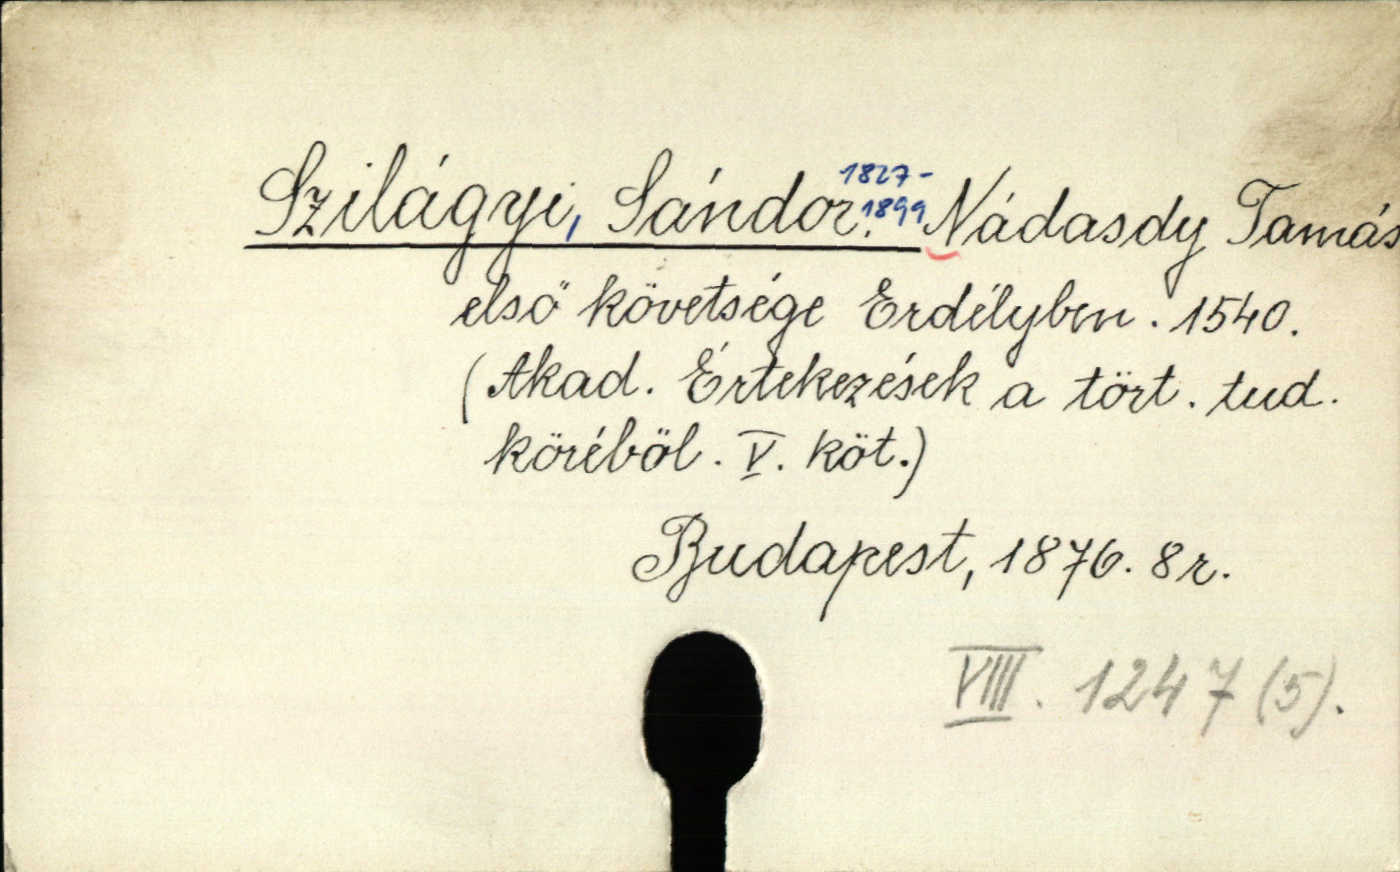 Szilágyi, Sándor. 1827-1899 Nádasdy Tamás
első követsége Erdélyben. 1540.
(Akad. Értekezések a tört. tud.
köréböl. V. köt.)
Budapest, 1876. 8r.
VIII. 1247 (5).